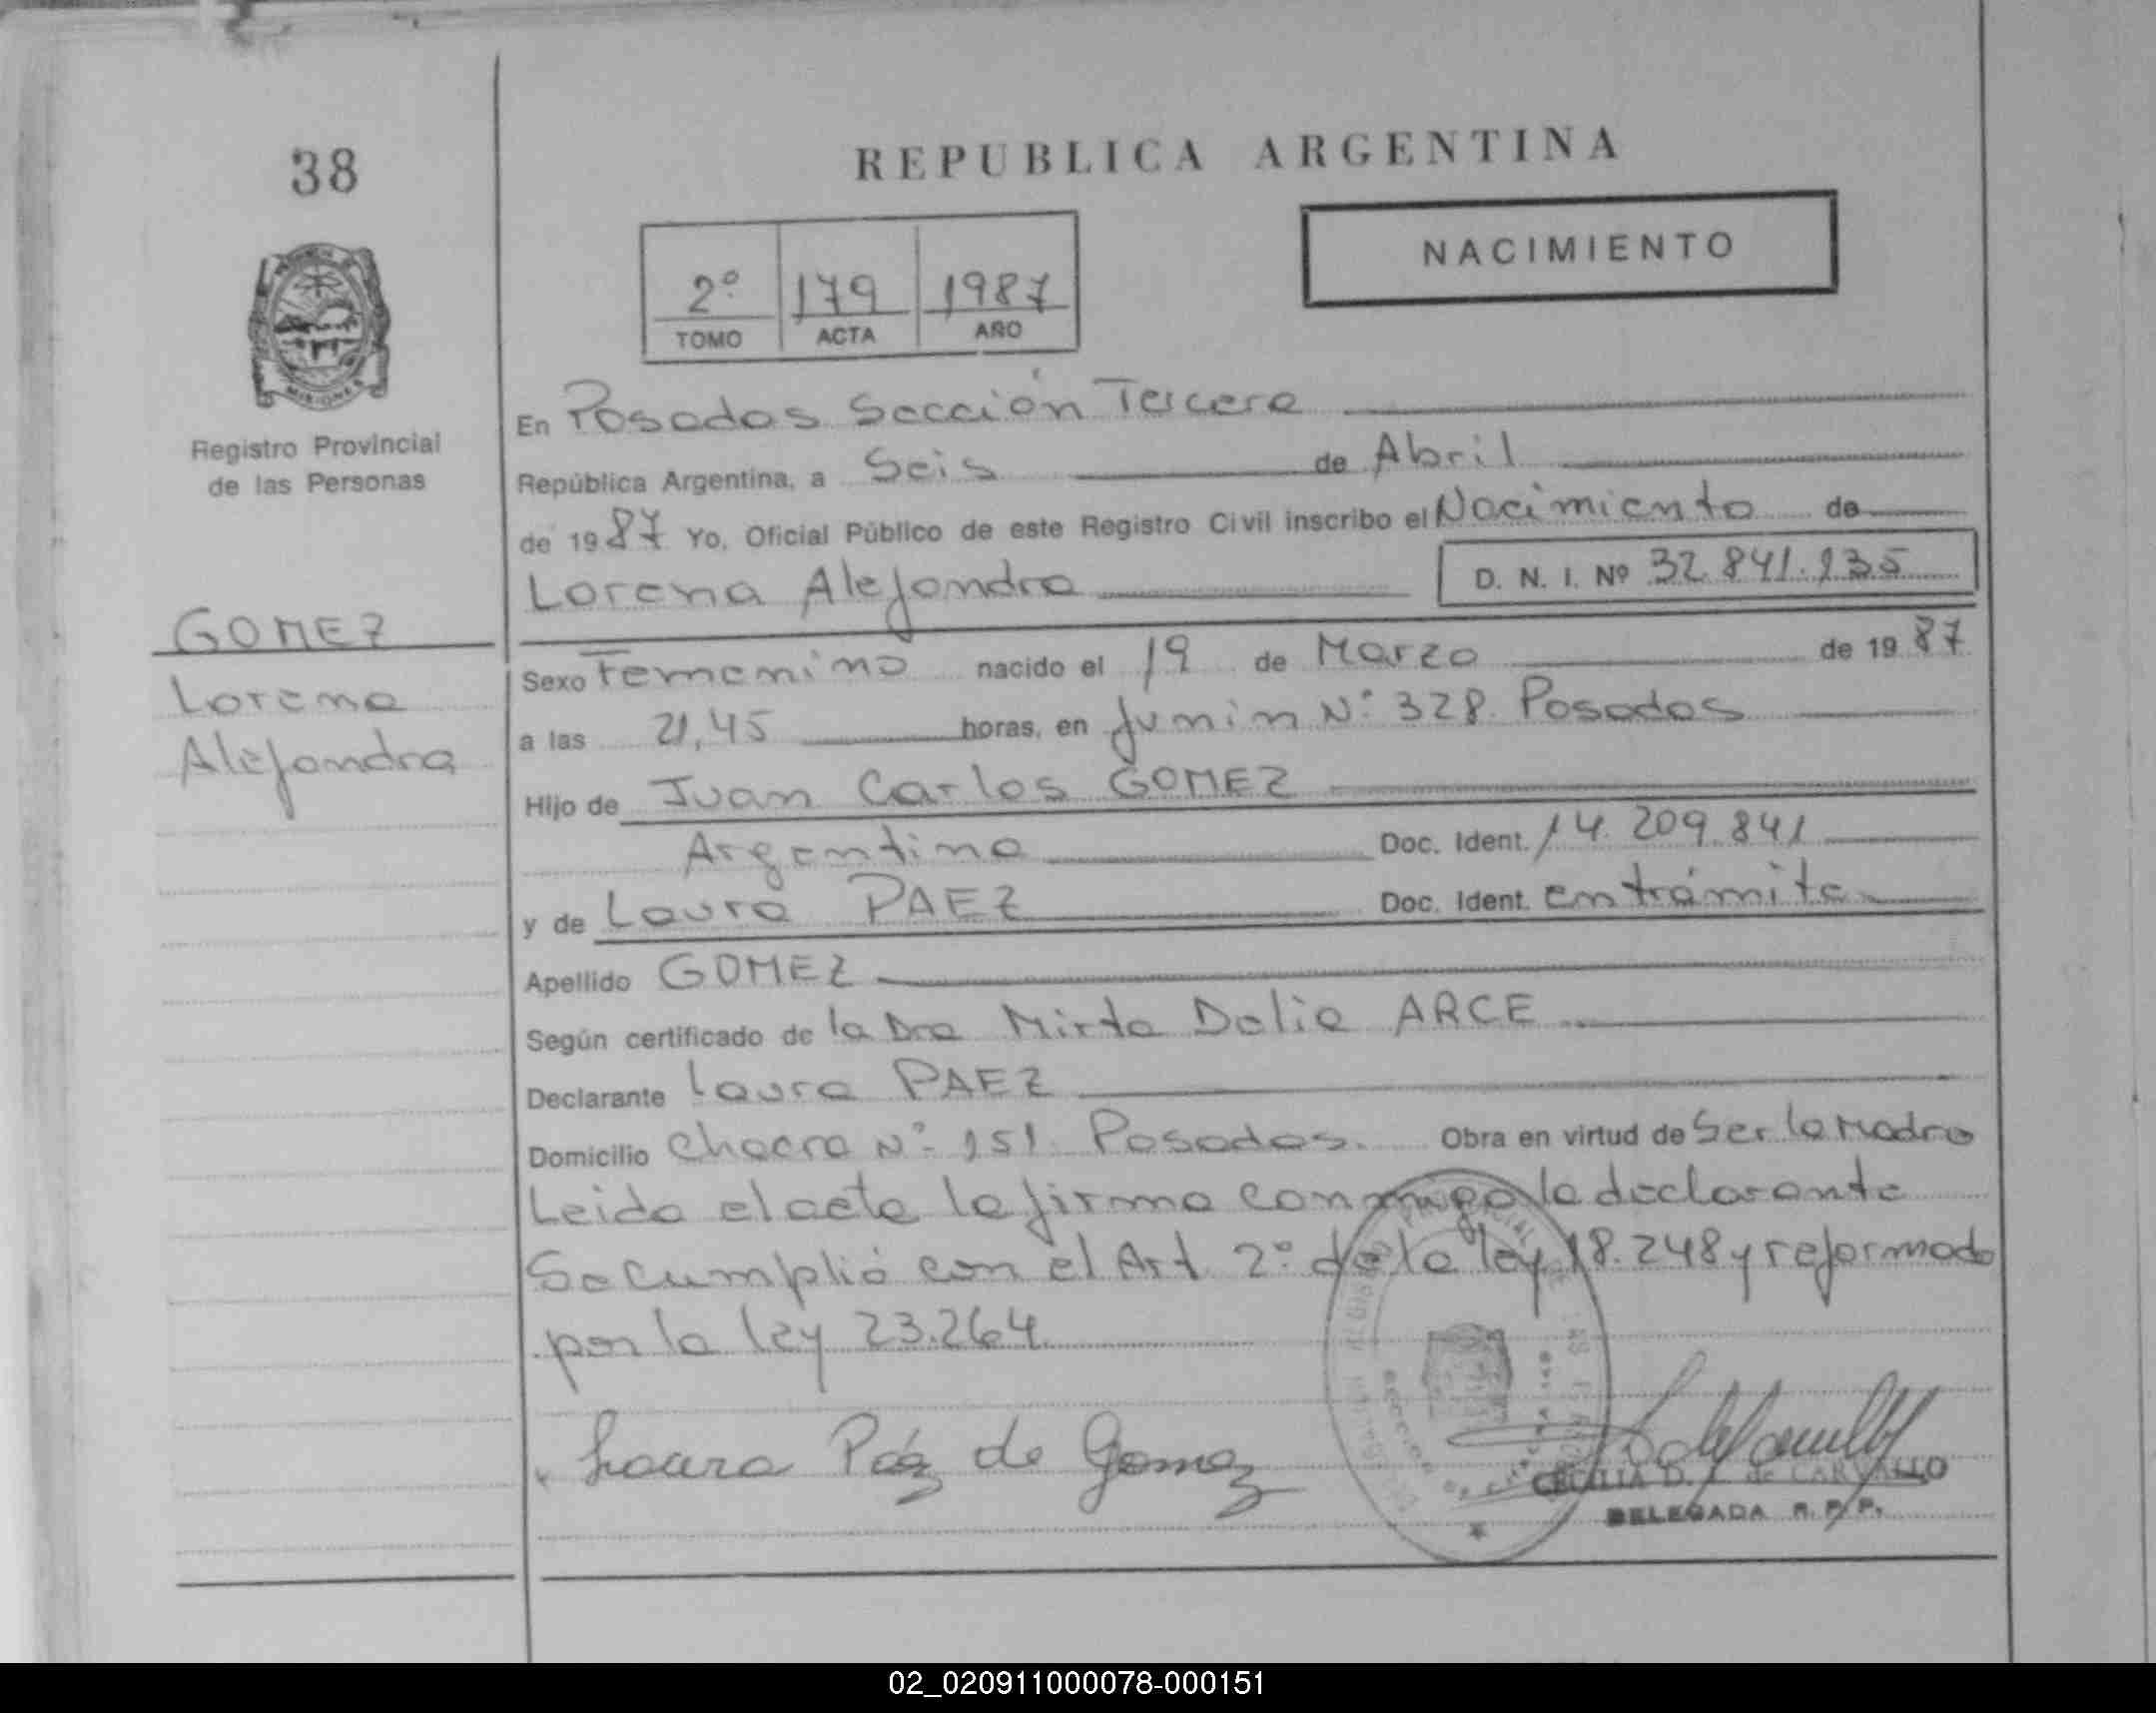 38
REPUBLICA ARGENTINA
NACIMIENTO
2º 179 1987
TOMO ACTA AÑO
MISIONES
Registro Provincial
de las Personas
GOMEZ
Lorena
Alejandra
En Posadas Sección Tercera
República Argentina, a Seis de Abril
de 1987 Yo, Oficial Público de este Registro Civil inscribo el Nacimiento de
Lorena Alejandra D. N. I. Nº 32.841.135
Sexo Femenino nacido el 19 de Marzo de 1987
a las 21,45 horas, en Junin Nº 328. Posadas
Hijo de Juan Carlos GOMEZ
Argentino Doc. Ident. 14.209.841
y de Laura PAEZ Doc. Ident. en trámite
Apellido GOMEZ
Según certificado de la Dra Mirta Dalia ARCE
Declarante Laura PAEZ
Domicilio Chacra Nº 151 Posadas. Obra en virtud de Ser la Madre
Leida el acta la firma conmigo la declarante
Se cumplió con el Art 2º de la ley 18.248 y reformado
por la ley 23.264.
Laura Páez de Gomez
CECILIA D. de CARVALLO
DELEGADA R. P. P.
02_020911000078-000151